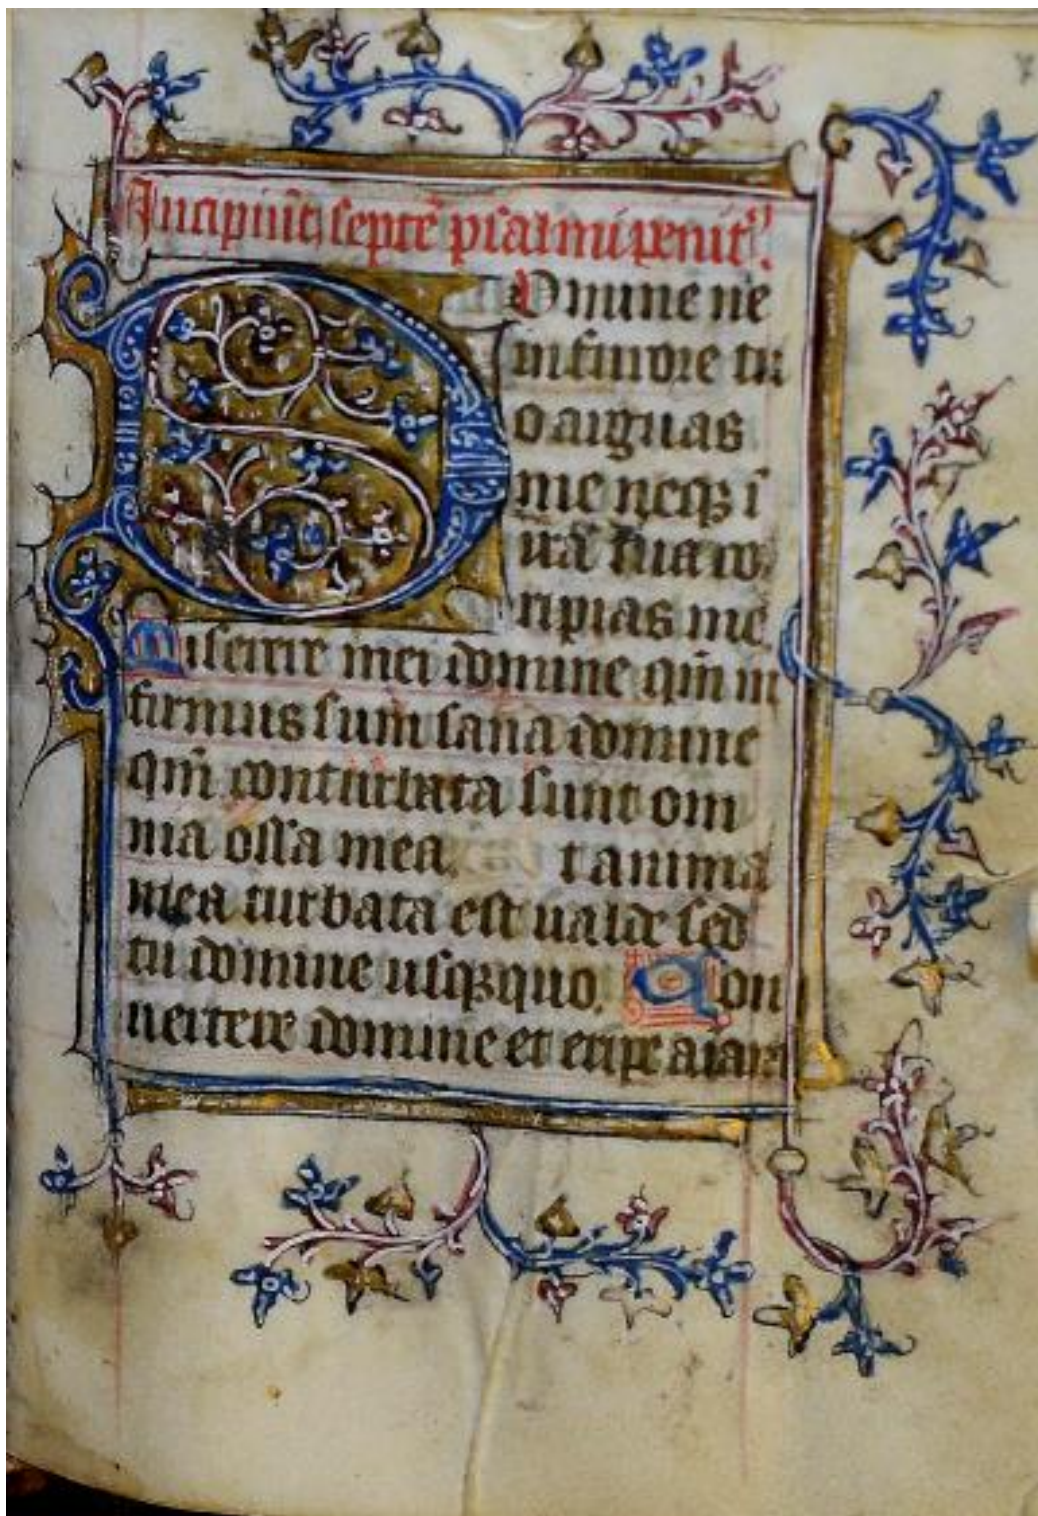 Incipiu͞t septe͞ psalmi penit͞.
Domine ne
in furore tu
o arguas
me neqꝫ i͞
ira͞ tua co
ripias me.
Miserere mei domine qm͞ in
firmus sum sana domine
qm͞ conturbata sunt om
nia ossa mea. t anima
mea turbata est ualde sed
tu domine usqꝫquo. Con
uertere domine et eripe aiam